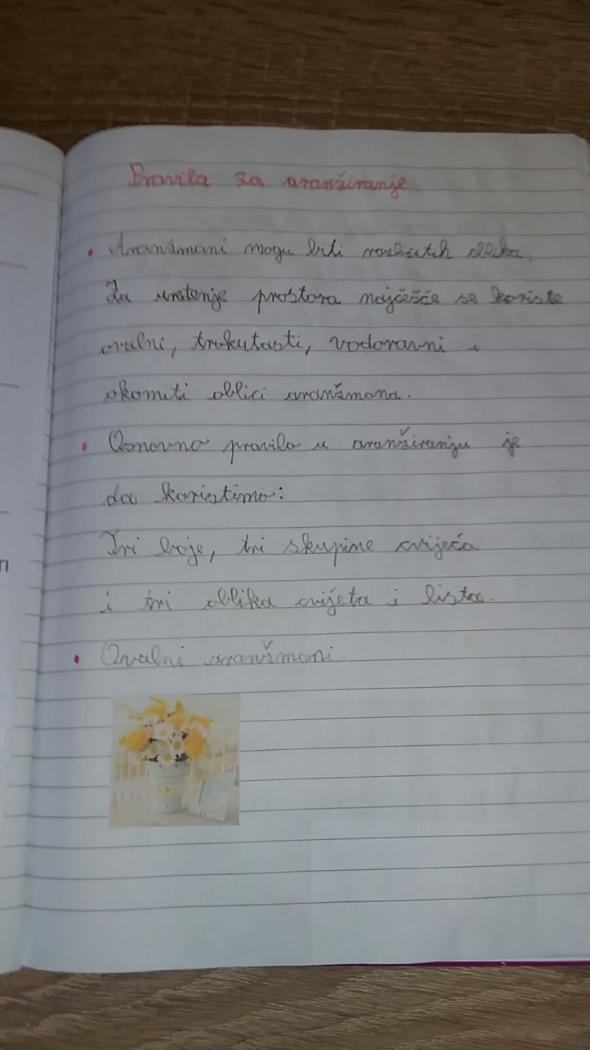 Pravila za aranžiranje
• Aranžmani mogu biti različitih oblika.
Za uređenje prostora najčešće se koriste
ovalni, trokutasti, vodoravni i
okomiti oblici aranžmana.
• Osnovno pravilo u aranžiranju je
da koristimo:
Tri boje, tri skupine cvijeća
i tri oblika cvijeta i lista.
• Ovalni aranžmani.
TI